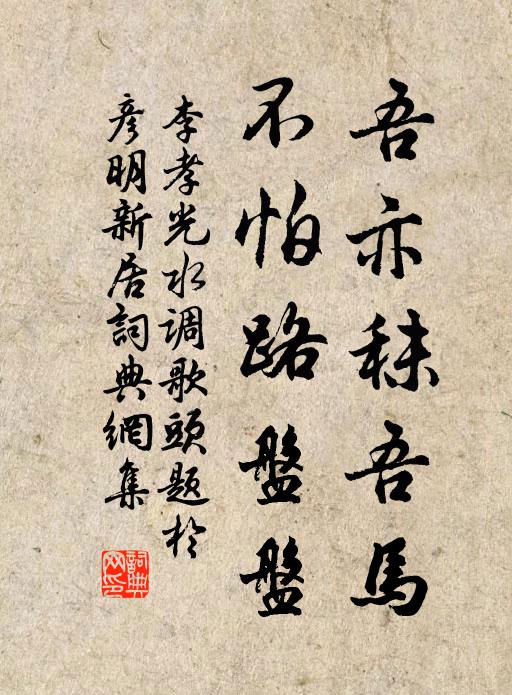 吾亦秣吾馬
不怕路盤盤
李孝光水调歌頭题於
彦明新居詞典網集
詞典网印